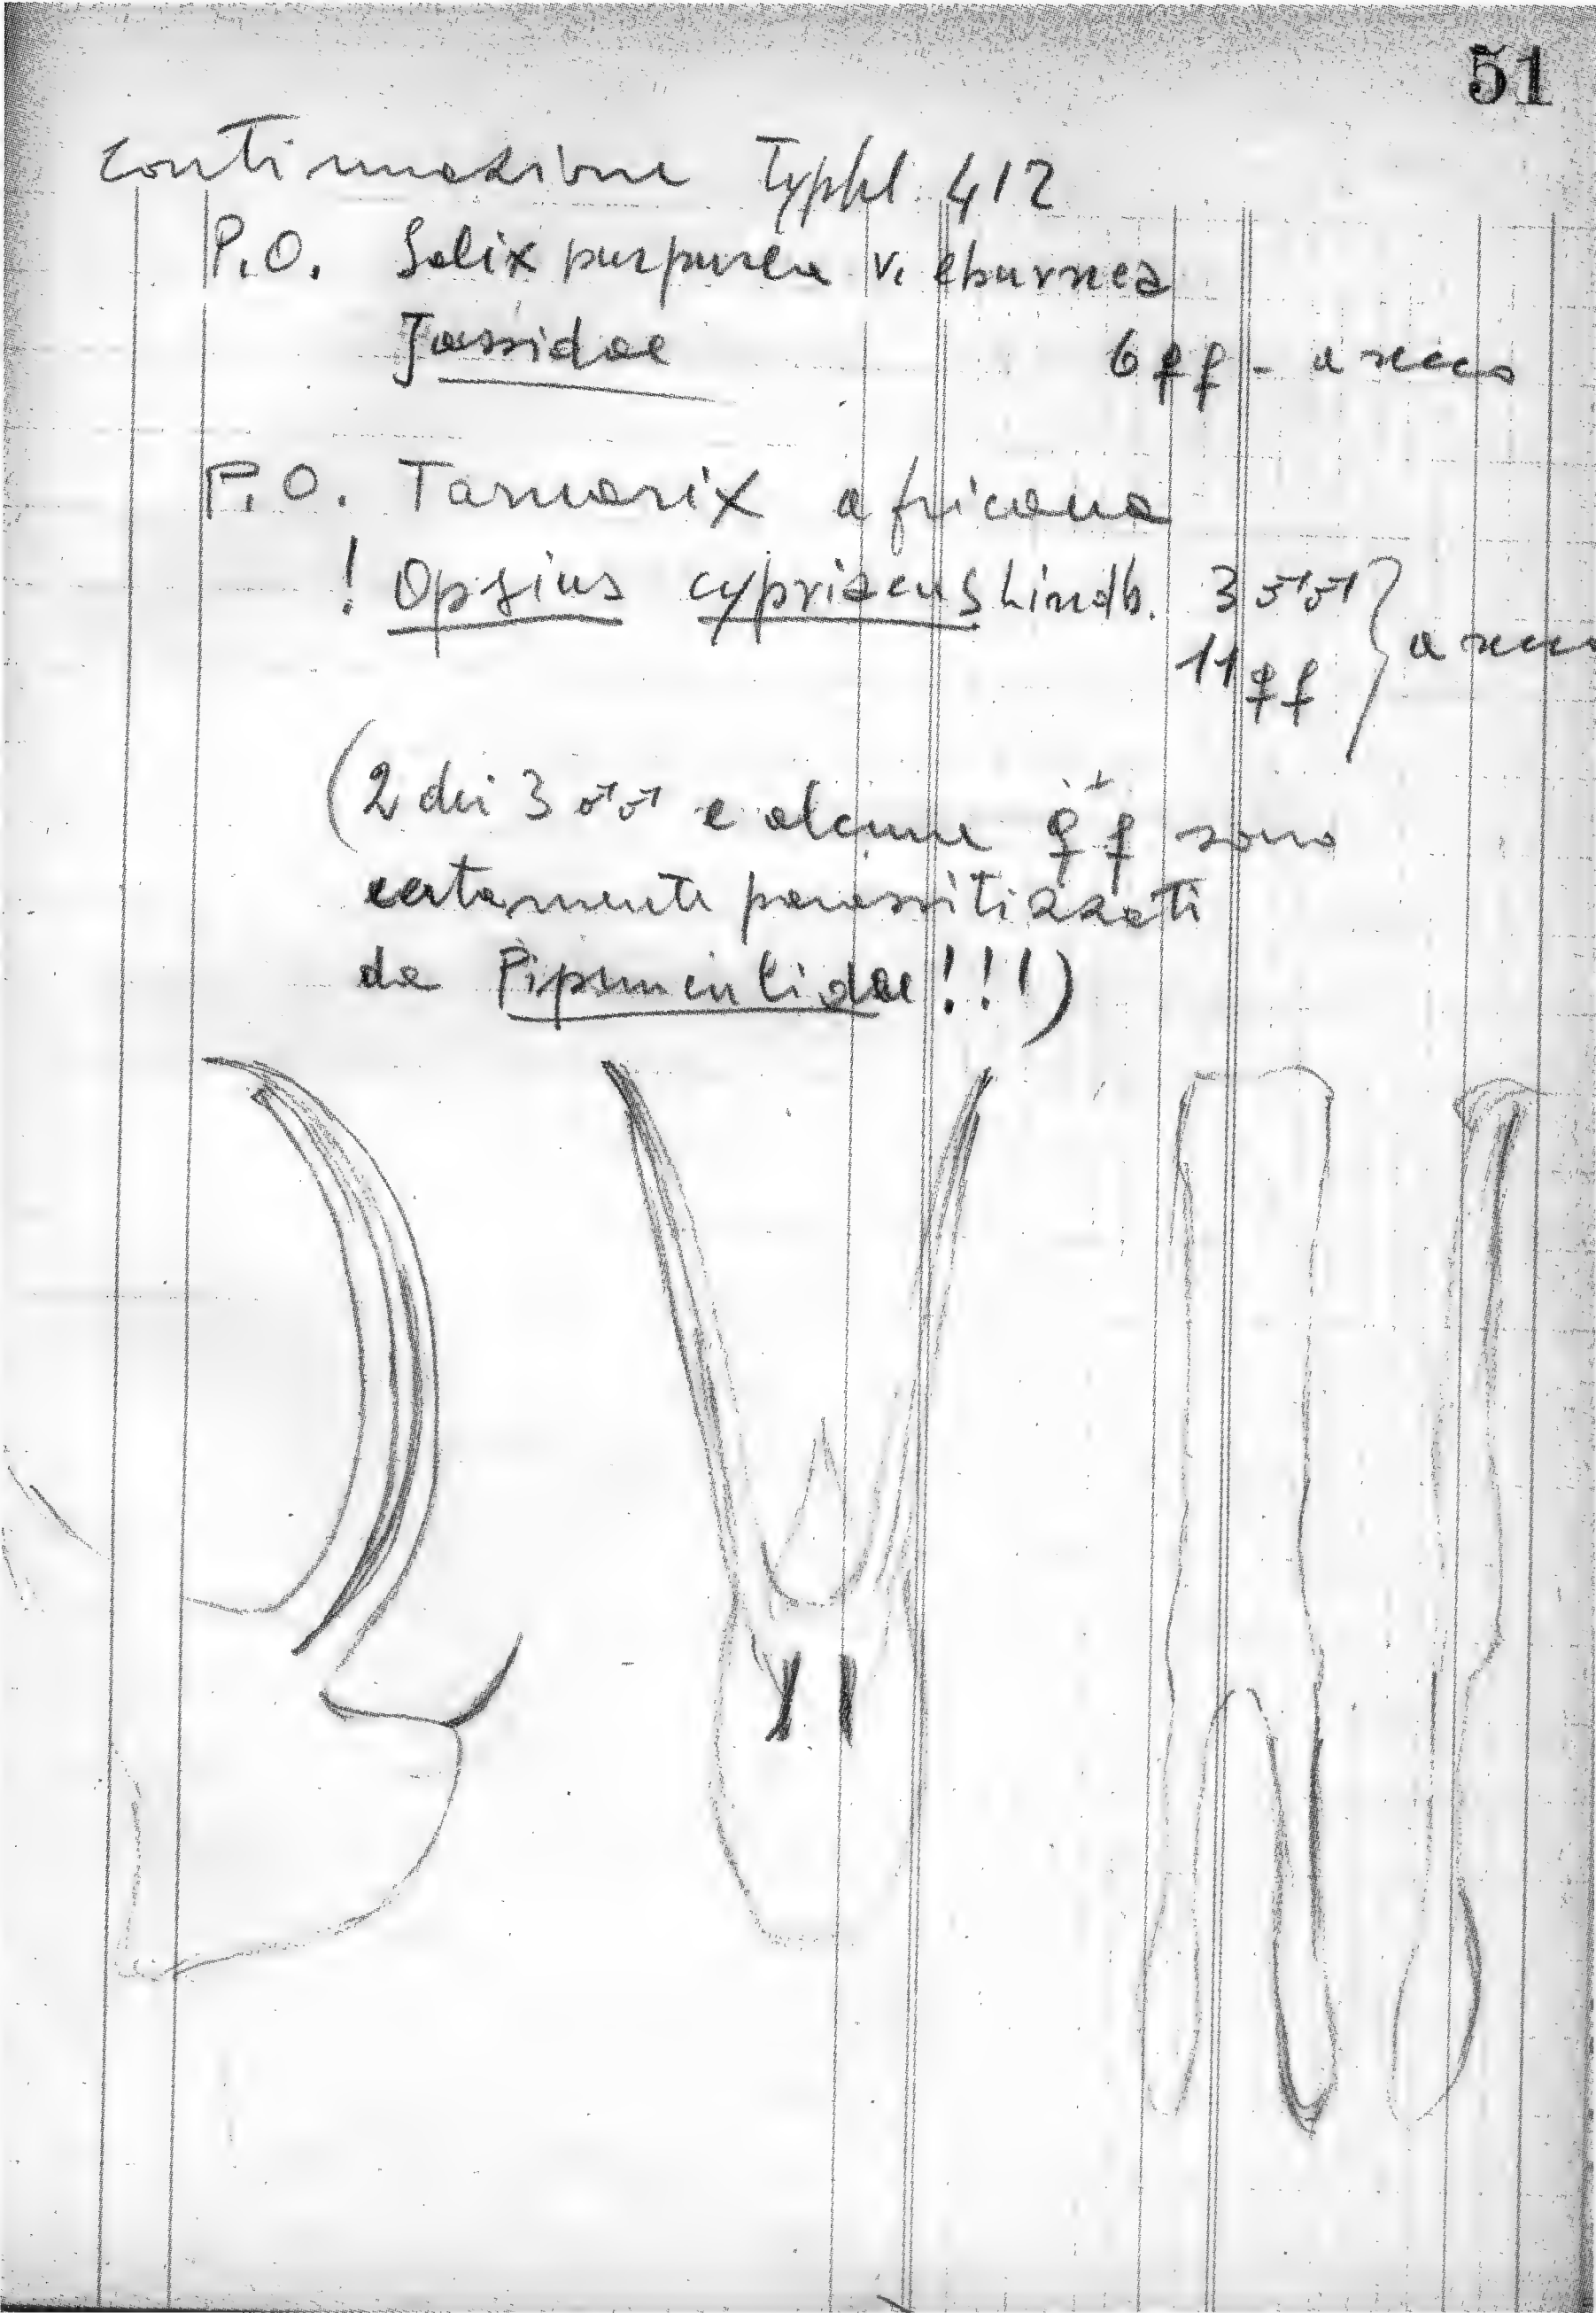 51
continuazione Typhl. 412
P.O. Salix purpurea v. eburnea
Jassidae 6 ♀♀ - a secco
P.O. Tamarix africana
! Opsius cypriacus Lindb. 3 ♂♂
11 ♀♀ } a secco
(2 dei 3 ♂♂ e alcune ♀♀ sono
certamente parassitizzati
da Pipunculidae!!!)